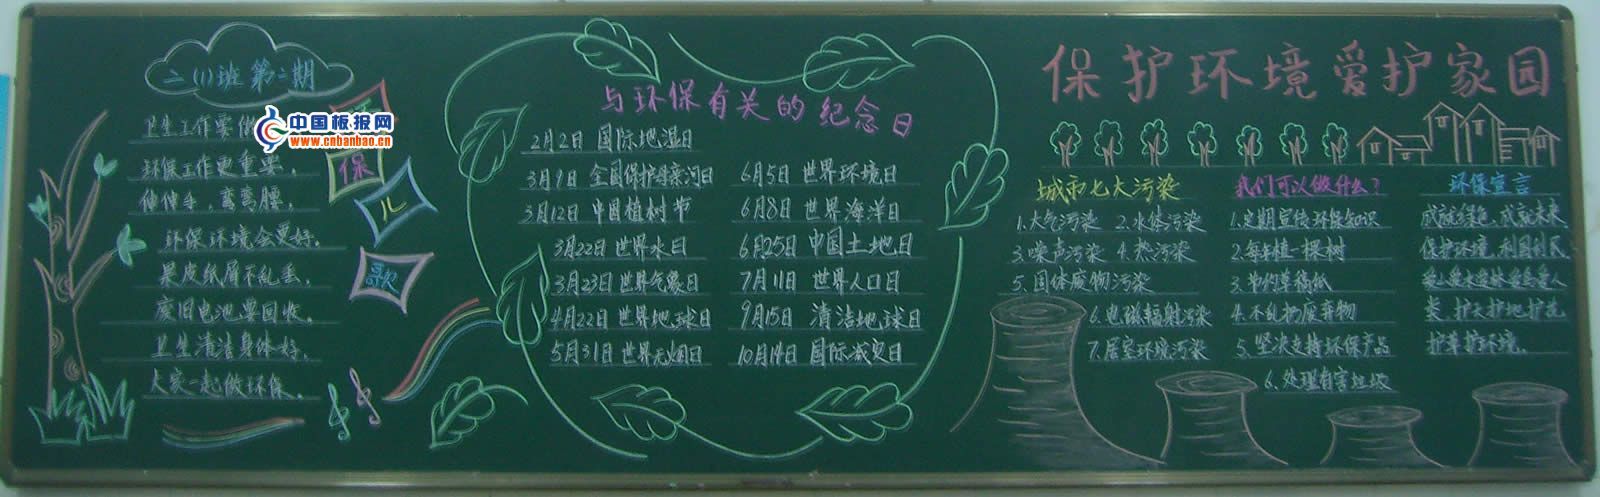 二(1)班 第二期
中国板报网
www.cnbanbao.cn
卫生工作要做
环保工作更重要，
伸伸手，弯弯腰，
环保环境会更好。
果皮纸屑不乱丢，
废旧电池要回收。
卫生清洁身体好，
大家一起做环保。
环
保
儿
歌
与环保有关的纪念日
2月2日 国际地湿日
3月9日 全国保护母亲河日
3月12日 中国植树节
3月22日 世界水日
3月23日 世界气象日
4月22日 世界地球日
5月31日 世界无烟日
6月5日 世界环境日
6月8日 世界海洋日
6月25日 中国土地日
7月11日 世界人口日
9月15日 清洁地球日
10月14日 国际减灾日
保护环境爱护家园
城市七大污染
1.大气污染 2.水体污染
3.噪声污染 4.热污染
5.固体废物污染
6.电磁辐射污染
7.居室环境污染
我们可以做什么？
1.定期宣传环保知识
2.每年植一棵树
3.节约草稿纸
4.不乱扔废弃物
5.坚决支持环保产品
6.处理有害垃圾
环保宣言
成就绿色，成就未来
保护环境，利国利民
爱人类，护天护地护花
护草护环境。